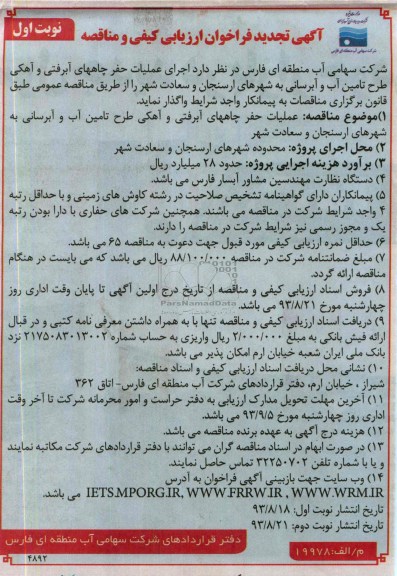 نوبت اول
آگهی تجدید فراخوان ارزیابی کیفی و مناقصه
شرکت سهامی آب منطقه ای فارس
شرکت سهامی آب منطقه ای فارس در نظر دارد اجرای عملیات حفر چاههای آبرفتی و آهکی
طرح تامین آب و آبرسانی به شهرهای ارسنجان و سعادت شهر را از طریق مناقصه عمومی طبق
قانون برگزاری مناقصات به پیمانکار واجد شرایط واگذار نماید.
۱)موضوع مناقصه: عملیات حفر چاههای آبرفتی و آهکی طرح تامین آب و آبرسانی به
شهرهای ارسنجان و سعادت شهر
۲) محل اجرای پروژه: محدوده شهرهای ارسنجان و سعادت شهر
۳) برآورد هزینه اجرایی پروژه: حدود ۲۸ میلیارد ریال
۴) دستگاه نظارت مهندسین مشاور آبسار فارس می باشد.
۵) پیمانکاران دارای گواهینامه تشخیص صلاحیت در رشته کاوش های زمینی و با حداقل رتبه
۴ واجد شرایط شرکت در مناقصه می باشند. همچنین شرکت های حفاری با دارا بودن رتبه
یک و مجوز رسمی نیز شرایط شرکت در مناقصه را دارند.
۶) حداقل نمره ارزیابی کیفی مورد قبول جهت دعوت به مناقصه ۶۵ می باشد.
۷) مبلغ ضمانتنامه شرکت در مناقصه ۸۸/۱۰۰/۰۰۰ ریال می باشد که می بایست در هنگام
مناقصه ارائه گردد.
۸) فروش اسناد ارزیابی کیفی و مناقصه از تاریخ درج اولین آگهی تا پایان وقت اداری روز
چهارشنبه مورخ ۹۳/۸/۲۱ می باشد.
۹) دریافت اسناد ارزیابی کیفی و مناقصه تنها با به همراه داشتن معرفی نامه کتبی و در قبال
ارائه فیش بانکی به مبلغ ۲/۰۰۰/۰۰۰ ریال واریزی به حساب شماره ۲۱۷۵۰۸۳۰۱۳۰۰۲ نزد
بانک ملی ایران شعبه خیابان ارم امکان پذیر می باشد.
۱۰) نشانی محل دریافت اسناد ارزیابی کیفی و اسناد مناقصه:
شیراز ، خیابان ارم، دفتر قراردادهای شرکت آب منطقه ای فارس- اتاق ۳۶۲
۱۱) آخرین مهلت تحویل مدارک ارزیابی به دفتر حراست و امور محرمانه شرکت تا آخر وقت
اداری روز چهارشنبه مورخ ۹۳/۹/۵ می باشد.
۱۲) هزینه درج آگهی به عهده برنده مناقصه می باشد.
۱۳) در صورت ابهام در اسناد مناقصه گران می توانند با دفتر قراردادهای شرکت مکاتبه نمایند
و یا با شماره تلفن ۳۲۲۵۰۷۰۲ تماس حاصل نمایند.
۱۴) وب سایت جهت بازبینی آگهی فراخوان به آدرس
IETS.MPORG.IR, WWW.FRRW.IR , WWW.WRM.IR می باشد.
تاریخ انتشار نوبت اول: ۹۳/۸/۱۸
تاریخ انتشار نوبت دوم: ۹۳/۸/۲۱
دفتر قراردادهای شرکت سهامی آب منطقه ای فارس
م/الف:۱۹۹۷۸
۴۸۹۲
ParsNamadData